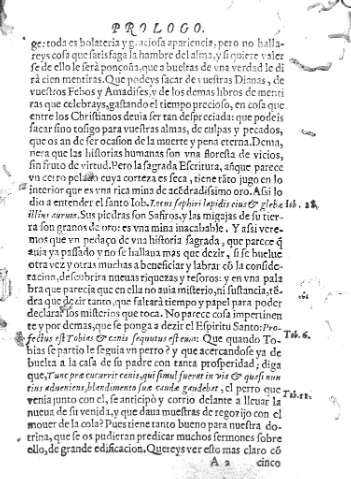 PROLOGO.
ge: toda es bolateria y graciosa apariencia, pero no halla-
reys cosa que satisfaga la hambre del alma, y si quiere valer
se de ello le será ponçoña, que a bueltas de vna verdad le di
rà cien mentiras. Que podeys sacar de vuestras Dianas, de
vuestros Febos y Amadises, y de los demas libros de menti
ras que celebrays, gastando el tiempo precioso, en cosa que
entre los Christianos deuia ser tan despreciada: que podeis
sacar sino tosigo para vuestras almas, de culpas y pecados,
que os an de ser ocasion de la muerte y pena eterna. Dema,
nera que las historias humanas son vna floresta de vicios,
sin fruto de virtud. Pero la sagrada Escritura, aũque parece
vn cerro pelado cuya corteza es seca, tiene tãto jugo en lo
interior que es vna rica mina de acẽdradissimo oro. Assi lo
dio a entender el santo Iob. Locus saphiri lapidis eius & glebæ
Iob. 28.
illius aurum. Sus piedras son Safiros, y las migajas de su tier-
ra son granos de oro: es vna mina inacabable. Y assi vere-
mos que vn pedaço de vna historia sagrada, que parece q̃
auia ya passado y no se hallaua mas que dezir, si se buelue
otra vez y otras muchas a beneficiar y labrar cõ la conside-
racion, descubrirà nueuas riquezas y tesoros: y en vna pala
bra que parecia que en ella no auia misterio, ni sustancia, tẽ
dra que dezir tanto, que faltarà tiempo y papel para poder
declarar los misterios que toca. No parece cosa impertinen
te y por demas, que se ponga a dezir el Espiritu Santo: Pro-
fectus est Tobias & canis sequutus est eum: Que quando To-
Tob. 6.
bias se partio le seguia vn perro? y que acercandose ya de
buelta a la casa de su padre con tanta prosperidad; diga
que, Tunc præ cucurrit canis, qui simul fuerat in via & quasi nun
tius adueniens, blandimento suæ caudæ gaudebat, el perro que
Tob. 11.
venia junto con el, se anticipò y corrio delante a lleuar la
nueua de su venida, y que daua muestras de regozijo con el
mouer de la cola? Pues tiene tanto bueno para nuestra do-
trina, que se os pudieran predicar muchos sermones sobre
ello, de grande edificacion. Quereys ver esto mas claro cõ
A 2 cinco